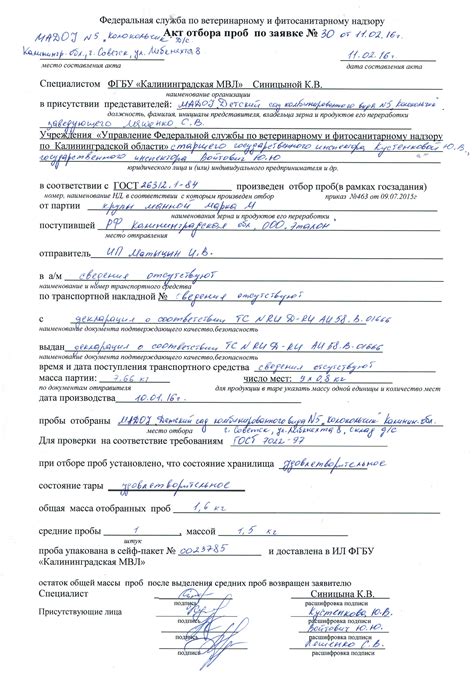 Федеральная служба по ветеринарному и фитосанитарному надзору
МАДОУ №5 „Колокольчик" д/с Акт отбора проб по заявке № 30 от 11.02.16г.
Калинингр. обл., г. Советск, ул. Лебенехта 8 11.02.16г.
место составления акта дата составления акта
Специалистом ФГБУ «Калининградская МВЛ» Синицыной К.В.
наименование организации
в присутствии представителей: МАДОУ Детский сад комбинированного вида №5 „Колокольчик"
должность, фамилия, инициалы представителя, владельца зерна и продуктов его переработки
заведующего Ляшенко С.В.
Учреждения «Управление Федеральной службы по ветеринарному и фитосанитарному надзору
по Калининградской области» старшего государственного инспектора Кустенковой Ю.В.,
государственного инспектора Войтович Ю.Ю.
юридического лица и (или) индивидуального предпринимателя и др.
в соответствии с ГОСТ 26312.1-84 произведен отбор проб(в рамках госзадания)
номер, наименование НД, в соответствии с которым произведен отбор приказ №463 от 09.07.2015г
от партии крупы манной марка М
наименования зерна и продуктов его переработки
поступившей РФ, Калининградская обл., ООО „Эталон
место отправления
отправитель ИП Матыцин И.В.
в а/м сведения отсутствуют
наименование и номер транспортного средства
по транспортной накладной № сведения отсутствуют
с декларация о соответствии ТС N RU Д-RU АИ58.В.01666
наименование документа подтверждающего качество,безопасность
выдан декларация о соответствии ТС N RU Д-RU АИ58.В.01666
наименование документа подтверждающего качество,безопасность
время и дата поступления транспортного средства сведения отсутствуют
масса партии: 7.66 кг число мест: 9 х 0,8 кг
по документам отправителя для продукции в таре указать массу одной единицы и количество мест
дата производства 10.01.16г.
пробы отобраны МАДОУ Детский сад комбинированного вида №5 „Колокольчик" Калинин. обл.
место отбора г. Советск, ул. Лебенехта 8, склад д/с
Для проверки на соответствие требованиям ГОСТ 7022-97
при отборе проб установлено, что состояние хранилища удовлетворительное
состояние тары удовлетворительное
общая масса отобранных проб 1,6 кг
средние пробы 1 , массой 1,5 кг
штук
проба упакована в сейф-пакет № 0023785 и доставлена в ИЛ ФГБУ
«Калининградская МВЛ»
остаток общей массы проб после выделения средних проб возвращен заявителю
Специалист Синицына К.В.
подпись расшифровка подписи
Присутствующие лица Кустенкова Ю.В.
подпись расшифровка подписи
Войтович Ю.Ю.
подпись расшифровка подписи
Ляшенко С.В.
подпись расшифровка подписи